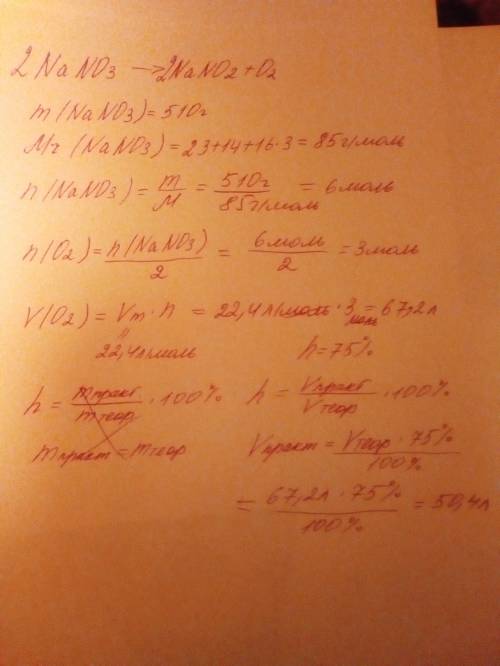 2NaNO3 → 2NaNO2 + O2
m(NaNO3) = 510г
Mr(NaNO3) = 23+14+16·3 = 85г/моль
n(NaNO3) = m/M = 510г/85г/моль = 6моль
n(O2) = n(NaNO3)/2 = 6моль/2 = 3моль
V(O2) = Vm·n = 22,4л/моль · 3моль = 67,2л
22,4л/моль h=75%
h = mпракт/mтеор · 100% h = Vпракт/Vтеор · 100%
mпракт = mтеор Vпракт = Vтеор · 75%/100%
= 67,2л · 75%/100% = 50,4л